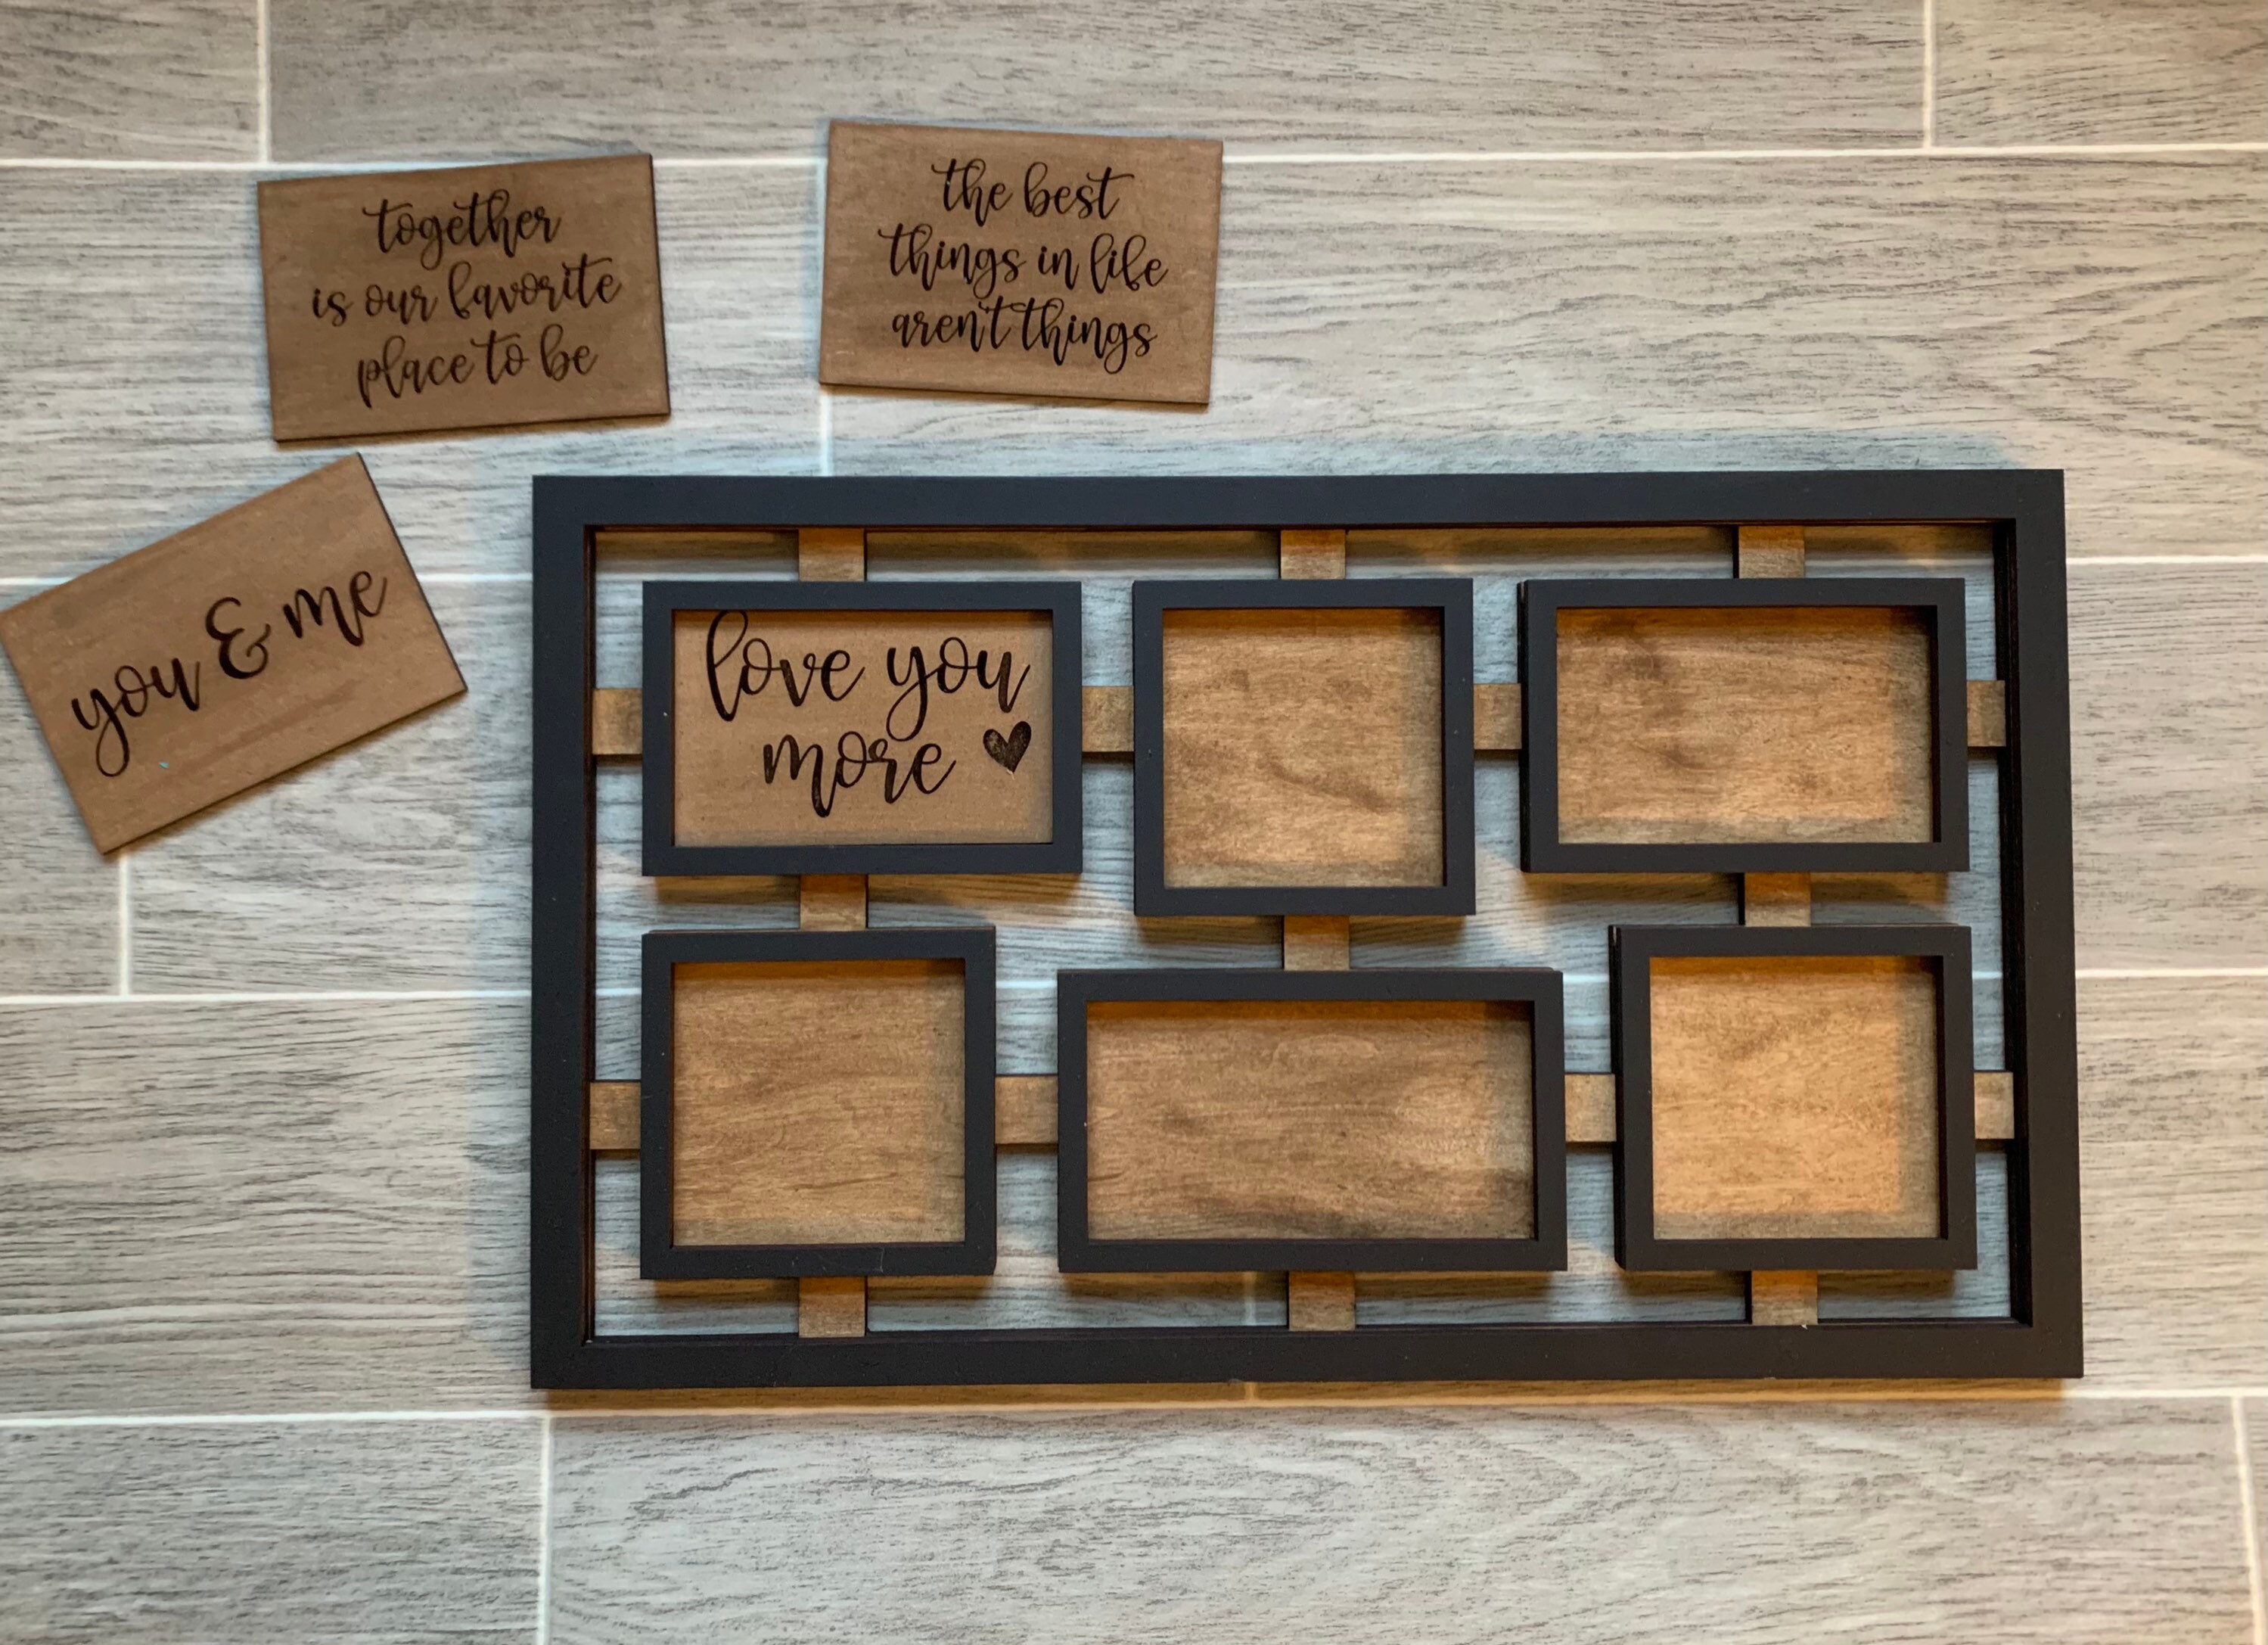 together
is our favorite
place to be
the best
things in life
aren't things
you & me
love you
more ♥